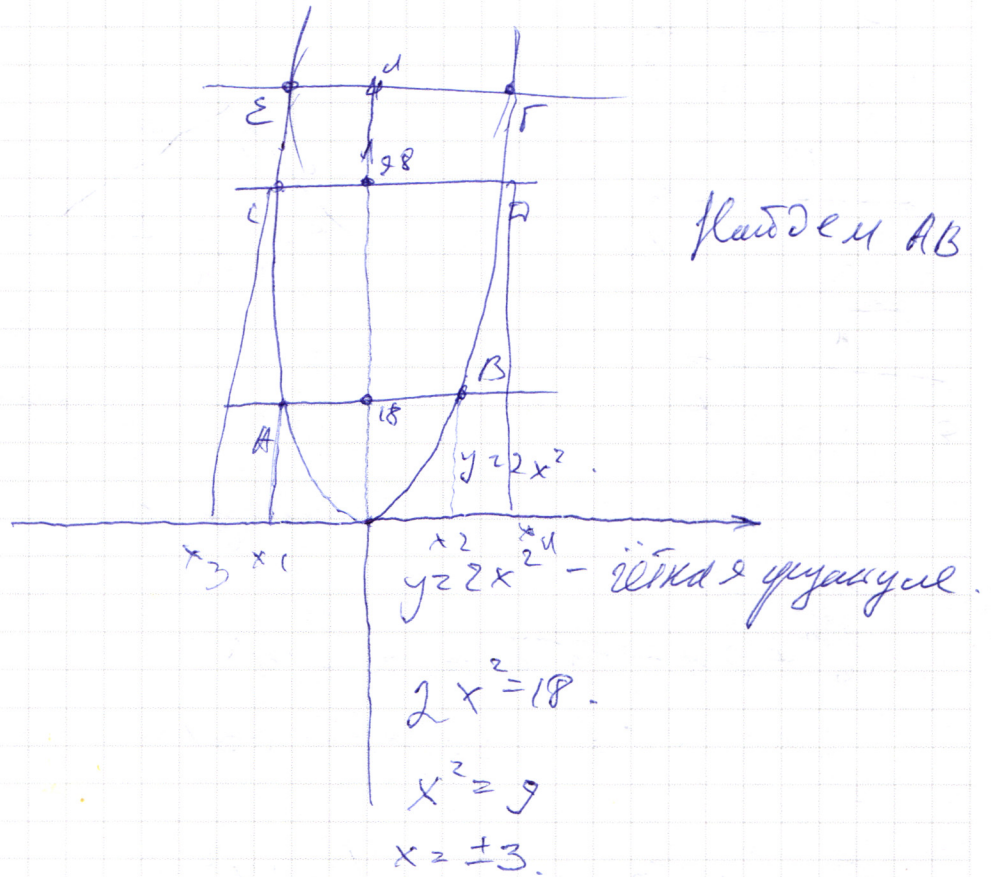 и
Е
F
98
C
D
Найдем AB
B
18
A
y=2x².
x₃ x₁ x₂ x₄
y=2x² - чётная функция.
2x²=18.
x²=9
x=±3.